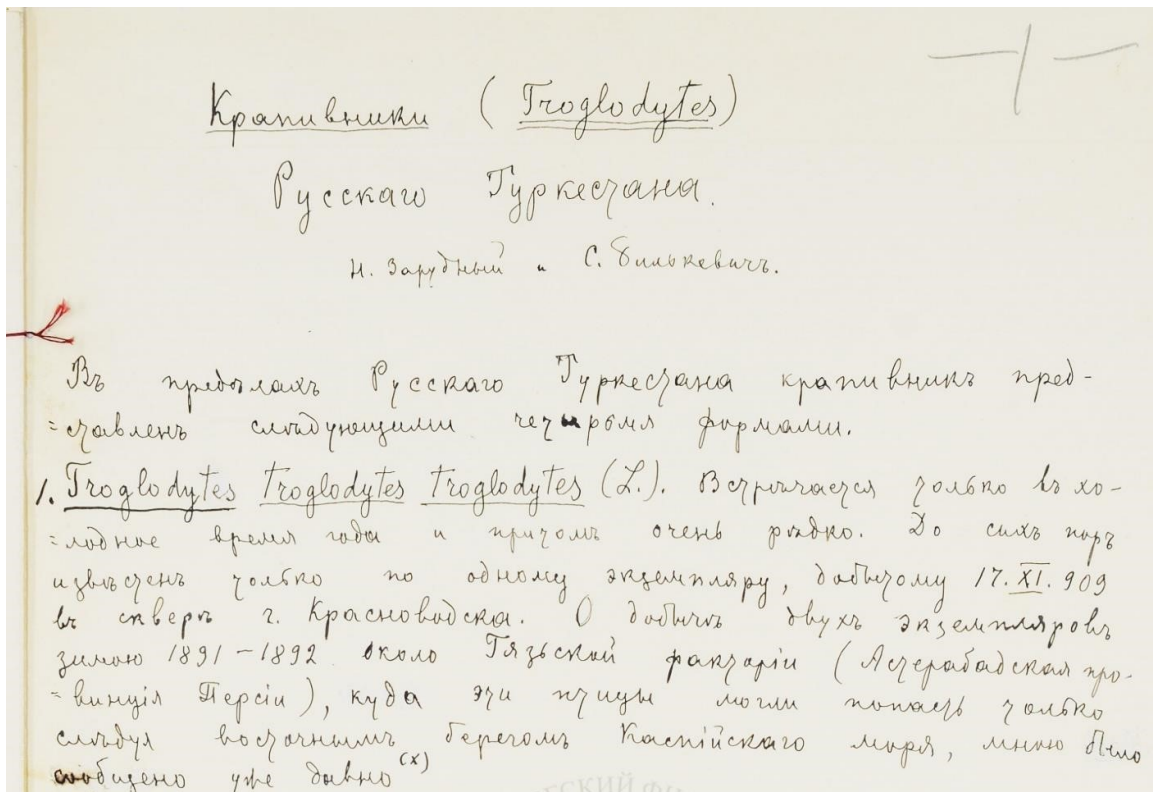 -1-
Крапивники (Troglodytes)
Русскаго Туркестана.
Н. Зарудный и С. Билькевичъ.
Въ предѣлахъ Русскаго Туркестана крапивникъ пред-
=ставленъ слѣдующими четырьмя формами.
1. Troglodytes troglodytes troglodytes (L.). Встрѣчается только въ хо-
=лодное время года и притомъ очень рѣдко. До сихъ поръ
извѣстенъ только по одному экземпляру, добытому 17.XI.909
въ скверѣ г. Красноводска. О добычѣ двухъ экземпляровъ
зимою 1891-1892 около Гязьской факторіи (Астерабадская про-
=винція Персіи), куда эти птицы могли попасть только
слѣдуя восточнымъ берегомъ Каспійскаго моря, мною было
сообщено уже давно (x)